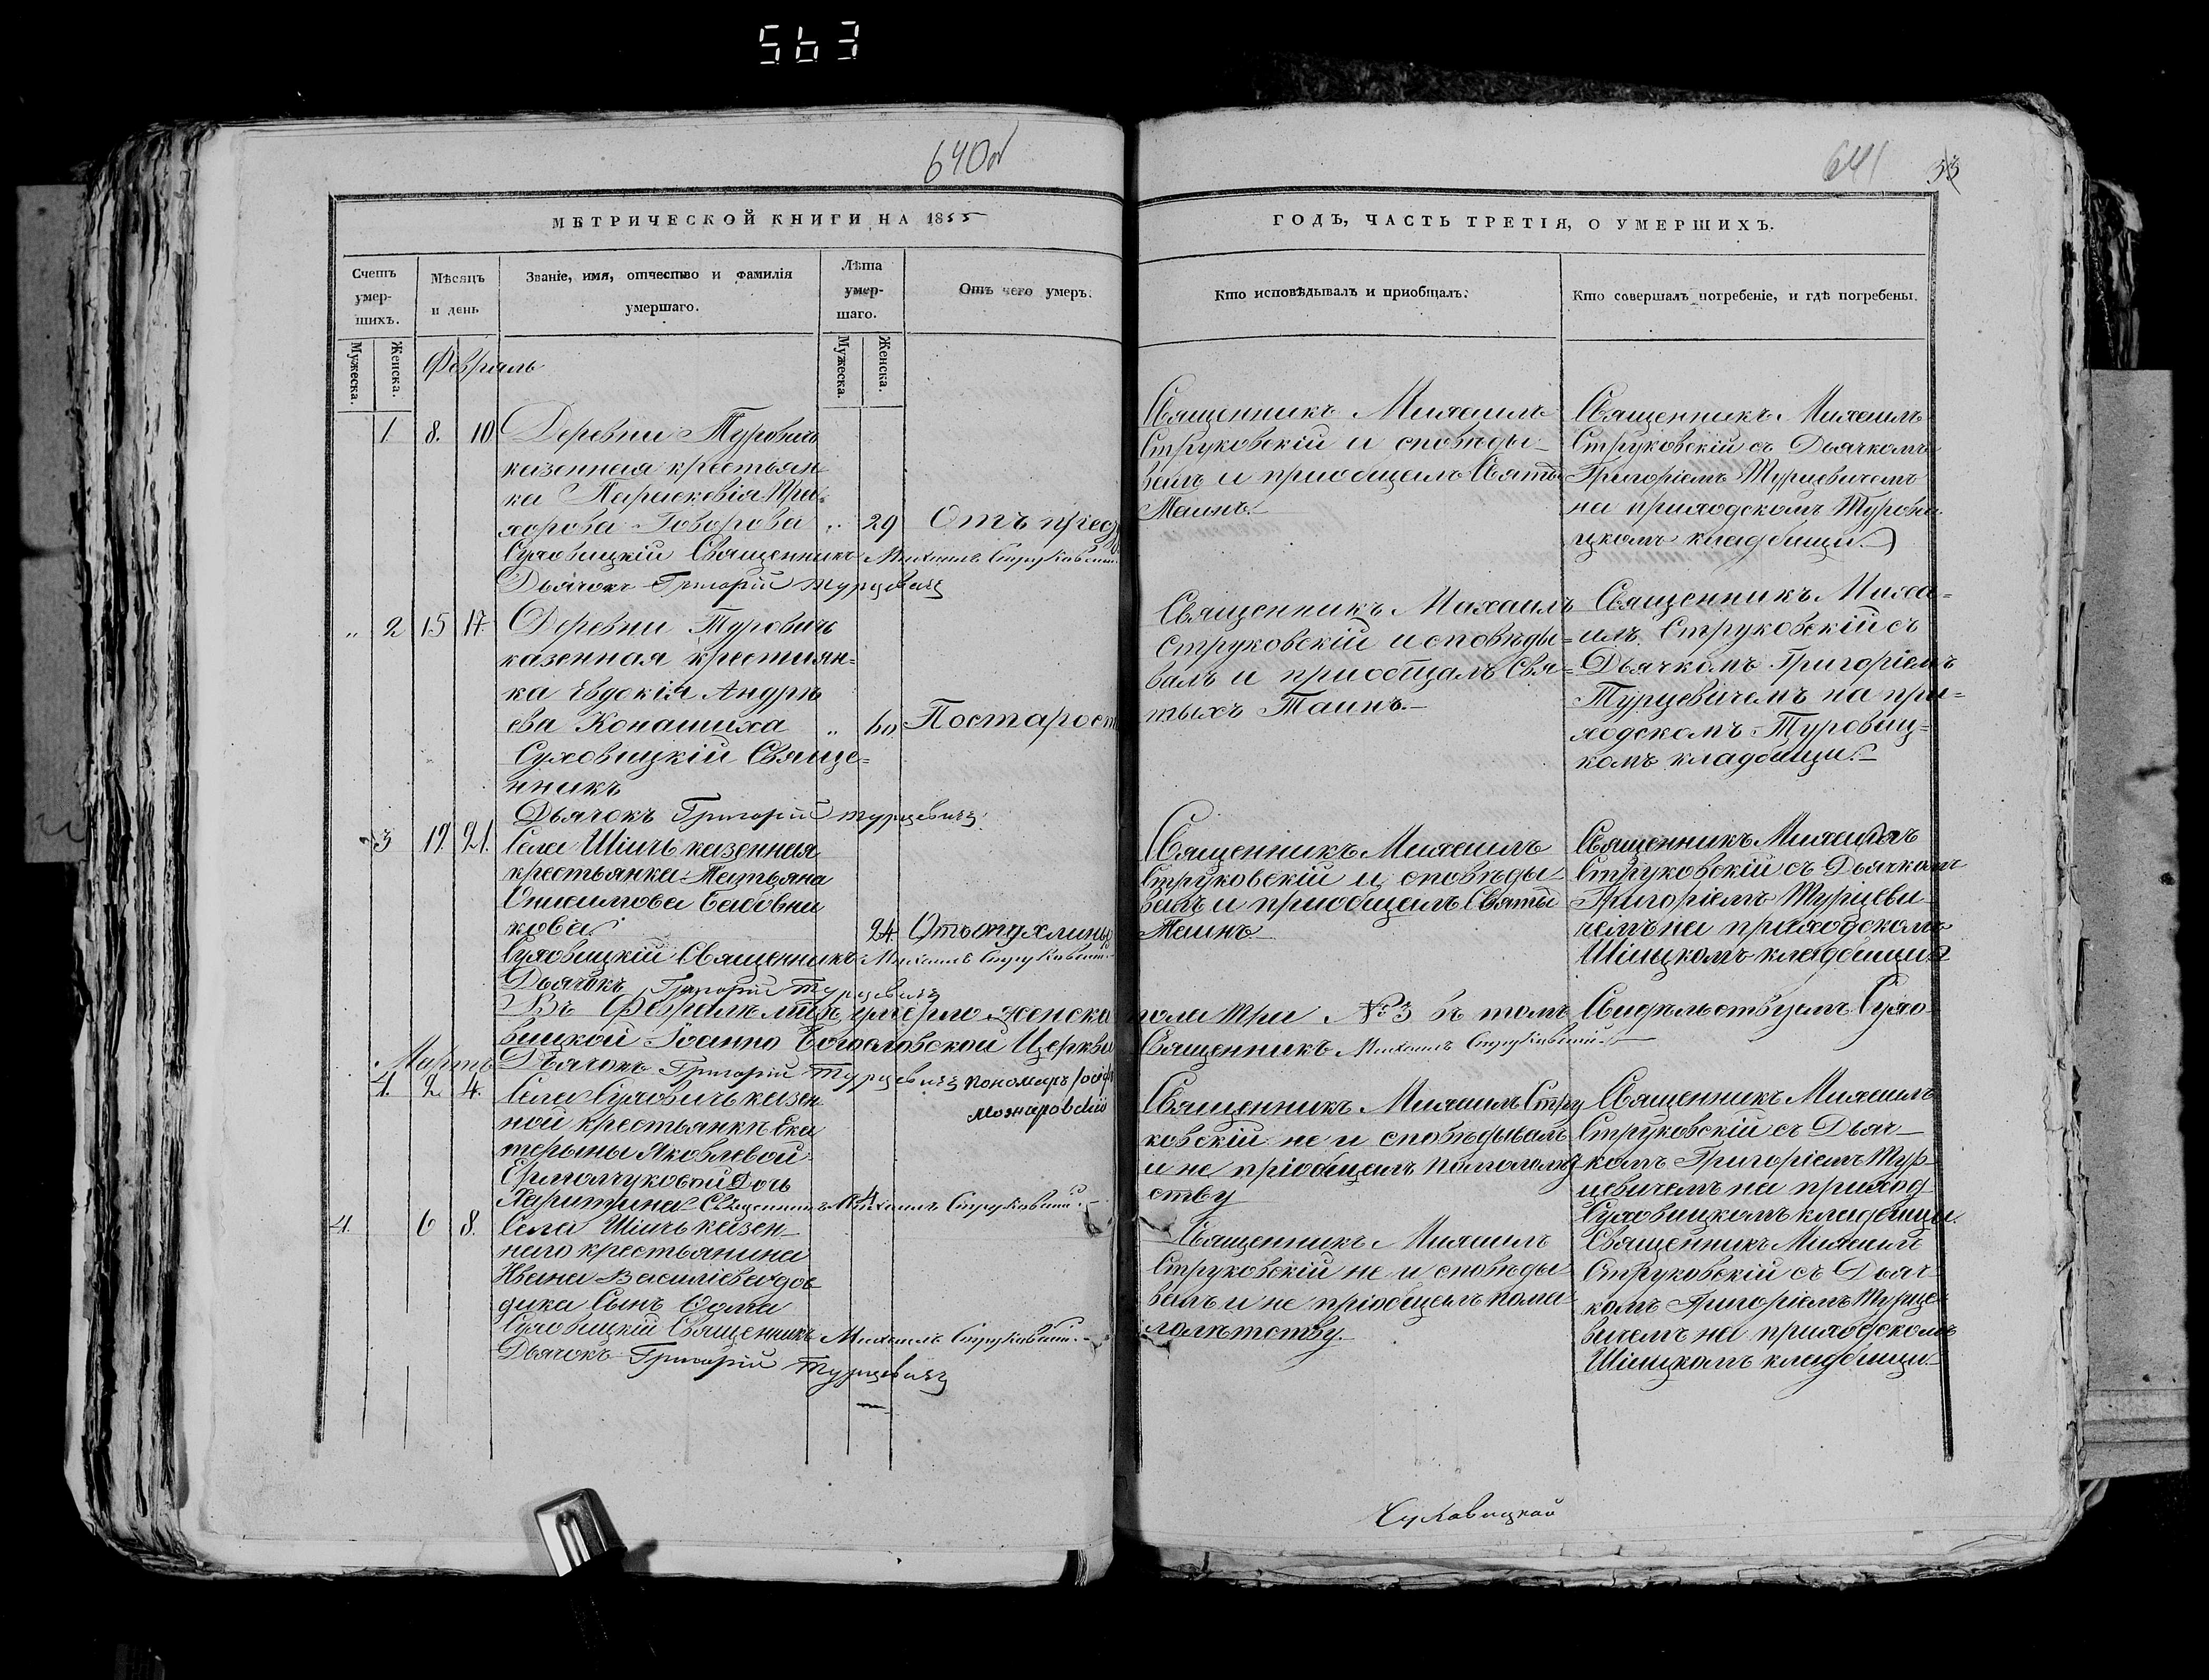 563
640об
641
53
МЕТРИЧЕСКОЙ КНИГИ НА 1855
ГОДЪ, ЧАСТЬ ТРЕТІЯ, О УМЕРШИХЪ.
Счетъ умер-шихъ.
Мѣсяцъ и день
Званіе, имя, отчество и фамилія умершаго.
Лѣта умер-шаго.
Отъ чего умеръ.
Кто исповѣдывалъ и приобщалъ.
Кто совершалъ погребеніе, и гдѣ погребены.
Мужеска.
Женска.
Мужеска.
Женска.
Февраль
1 8. 10 Деревни Туровичь
казенная крестьян
ка Параскевія
Говорова „ 29 Отъ
Суховицкій Священникъ Михаилъ Струковскій
Дьячокъ Григорій Турцевичъ
Священникъ Михаилъ
Струковскій и сповѣды-
валъ и приобщалъ Святы
Таинъ.
Священникъ Михаилъ
Струковскій съ Дьячкомъ
Григоріемъ Турцевичемъ
на приходскомъ Турови
цкомъ кладбищи.
„ 2 15 17. Деревни Туровичь
казенная крестиян=
ка Евдокія Андрѣ
ева Конашиха „ 60 Постарост
Суховицкій Свяще=
нникъ
Дьячокъ Григорій Турцевичъ
Священникъ Михаилъ
Струковскій исповѣды=
валъ и приобщалъ Свя=
тыхъ Таинъ.—
Священникъ Миха=
илъ Струковскій съ
Дьячкомъ Григоріемъ
Турцевичемъ на при=
ходскомъ Туровиц=
комъ кладбищи.—
3 19. 21. Села Шіичь казенная
крестьянка Татьяна
Онисимова
24. Отъ опухлины
Суховицкій Священникъ Михаилъ Струковскій
Дьячокъ Григорій Турцевичъ
Священникъ Михаилъ
Струковскій и сповѣды-
валъ и приобщалъ Святы
Таинъ
Священникъ Михаилъ
Струковскій съ Дьячкомъ
Григоріемъ Турцеви
чемъ на приходскомъ
Шіицкомъ кладбищи
Въ Февралѣ мцѣ умерло женска пола три № 3 въ томъ Свидѣльствуемъ Сухо
вицкой Іоанно Богословской Церкви Священникъ Михаилъ Струковскій
Дьячокъ Григорій Турцевичъ пономарь
Мартъ
4. 2 4. Села Суховичь казен
ной крестьянки Ека
терыны Яковлевой
Ермолчуковой дочь
Харитина Священникъ Михаилъ Струковскій.—
Священникъ Михаилъ Стру
ковскій не и сповѣдывалъ
и не пріобщалъ помололѣ
ству
Священникъ Михаилъ
Струковскій съ Дьяч—
комъ Григоріемъ Тур-
цевичемъ на приход
Суховицкомъ кладбищи.
4 6 8. Села Шіичь казен—
наго крестьянина
Ивана Василіева
сынъ Ѳома
Суховицкій Священникъ Михаилъ Струковскій.—
Дьячокъ Григорій Турцевичъ
Священникъ Михаилъ
Струковскій не и сповѣды-
валъ и не пріобщалъ пома-
лолѣтству.
Священникъ Михаилъ
Струковскій съ Дьяч-
комъ Григоріемъ Турце-
вичемъ на приходскомъ
Шіицкомъ кладбищи.—
Суховицкой